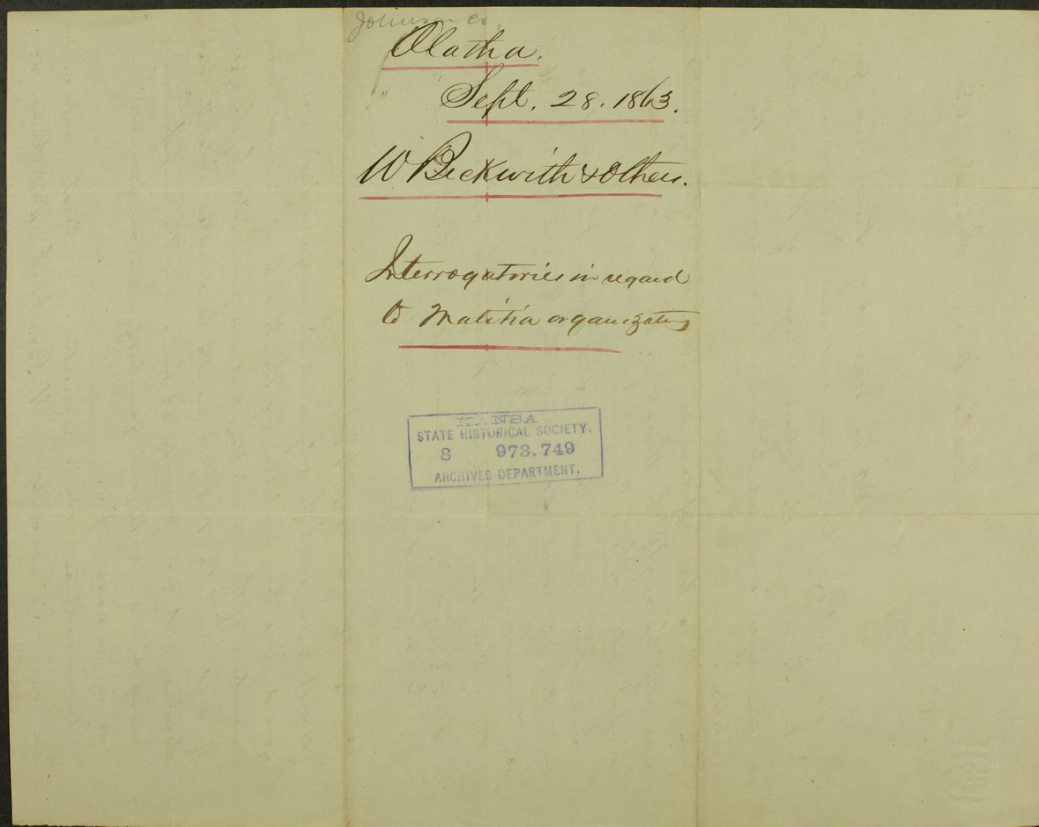 Johnson Co.
Olatha.
Sept. 28. 1863.
W Beckwith & Others.
Interrogatories in regard
to Malitia organization
KANSA
STATE HISTORICAL SOCIETY.
8 973.749
ARCHIVES DEPARTMENT.